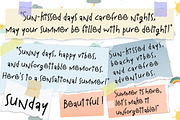 "Sun-kissed days and carefree nights,
may your summer be filled with pure delight!"
"Sunny days, happy vibes,
and unforgettable memories.
Here's to a sensational summer!"
"Sun-kissed days,
beachy vibes,
and carefree
adventures."
Sunday
Beautiful!
"Summer is here,
let's make it
unforgettable!"